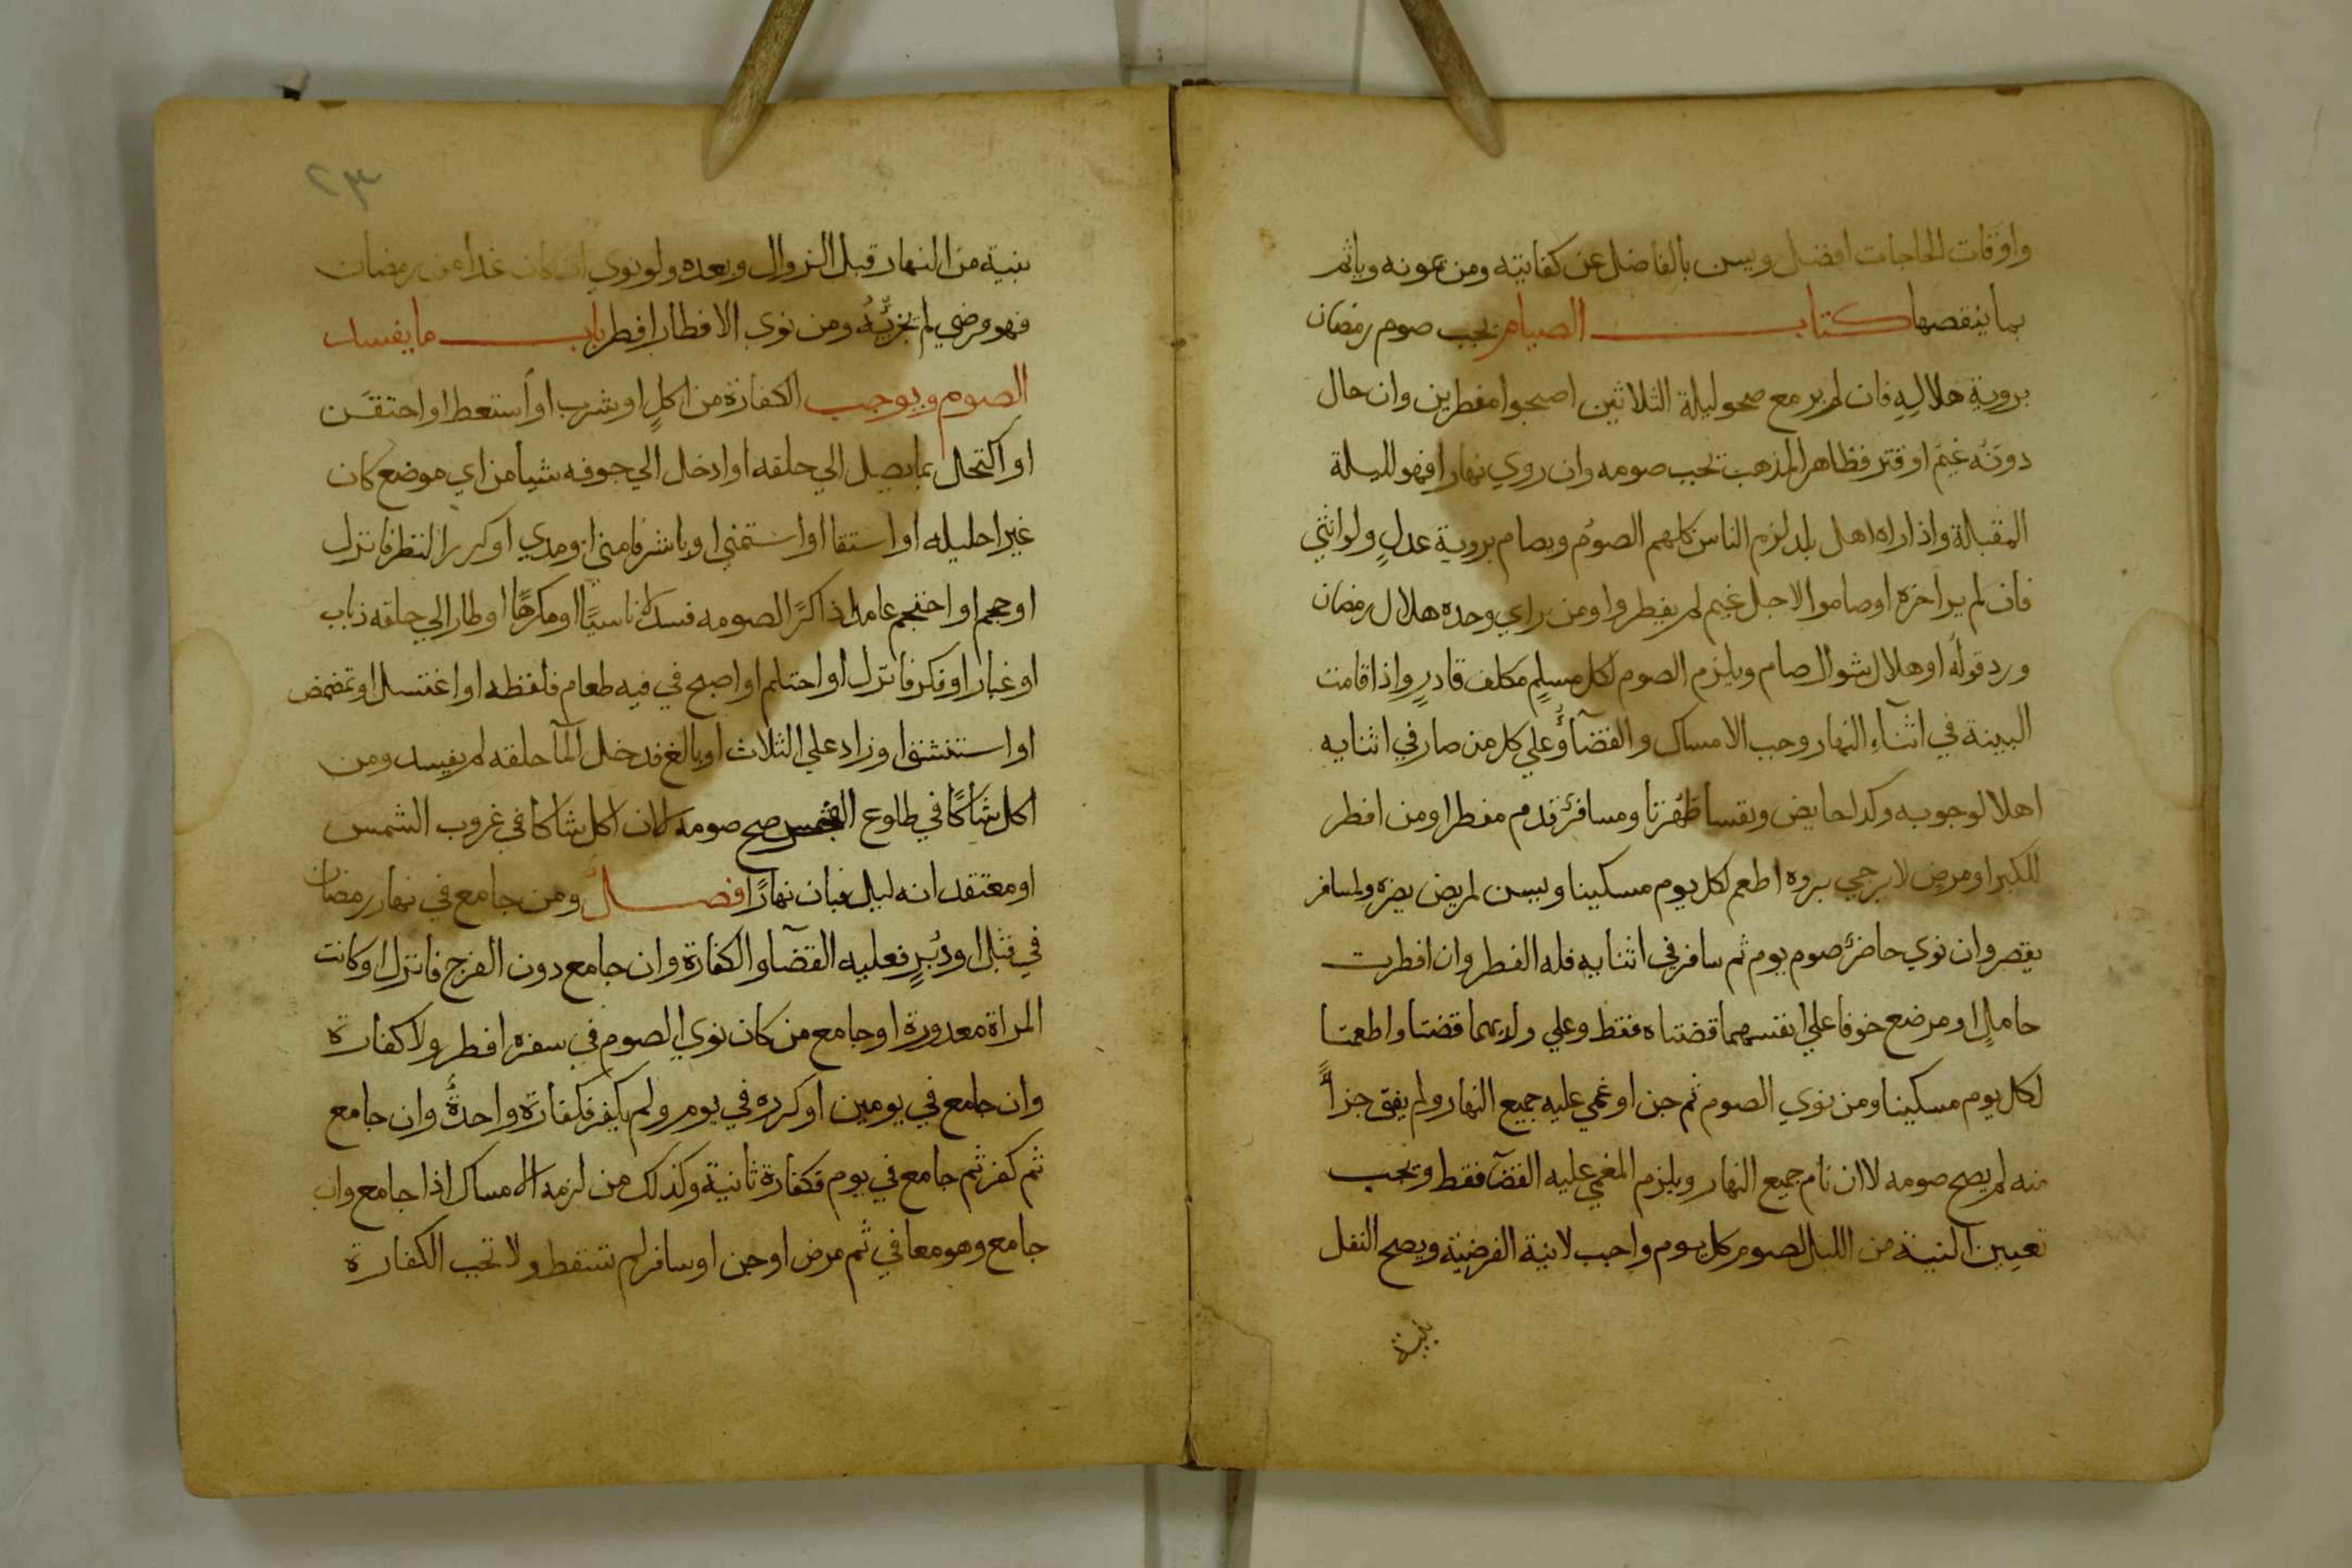 واوقات الحاجات افضل ويسن بالفاضل عن كفايته ومن يمونه وياثم
بما ينقصها كتاب الصيام يجب صوم رمضان
بروية هلاله فان لم ير مع صحو ليلة الثلاثين اصبحوا مفطرين وان حال
دونه غيم او قتر فظاهر المذهب يجب صومه وان روي نهارا فهو لليلة
المقبلة واذا راه اهل بلد لزم الناس كلهم الصوم ويصام بروية عدل ولو انثى
فان لم ير اخره او صاموا لاجل غيم لم يفطروا ومن راي وحده هلال رمضان
ورد قوله او هلال شوال صام ويلزم الصوم لكل مسلم مكلف قادر واذا قامت
البينة في اثنآء النهار وجب الامساك والقضآؤ علي كل من صار في اثنايه
اهلا لوجوبه وكدا حايض ونفسا طهرتا ومسافر قدم مفطرا ومن افطر
للكبر او مرض لا يرجي بروه اطعم لكل يوم مسكينا ويسن لمريض يضره ولمسافر
يقصر وان نوي حاضر صوم يوم ثم سافر في اثنايه فله الفطر وان افطرت
حامل او مرضع خوفا علي انفسهما قضتاه فقط وعلي ولديهما قضتا واطعمتا
لكل يوم مسكينا ومن نوي الصوم ثم جن او غمي عليه جميع النهار ولم يفق جزأً
منه لم يصح صومه لا ان نام جميع النهار ويلزم المغمي عليه القضآ فقط ويجب
تعيين النية من الليل لصوم كل يوم واجب لا نية الفرضية ويصح النفل
بنية
٢٣
بنية من النهار قبل الزوال وبعده ولو نوي ان كان غدا من رمضان
فهو فرضي لم يجزيه ومن نوي الافطار افطر باب ما يفسد
الصوم ويوجب الكفارة من اكل او شرب او استعط او احتقن
او اكتحل بما يصل الي حلقه او ادخل الي جوفه شيا من اي موضع كان
غير احليله او استقا او استمني او باشر فامني او مدي او كرر النظر فانزل
او حجم او احتجم عامدا ذاكرا لصومه فسد لا ناسيا او مكرها او طار الي حلقه ذباب
او غبار او فكر فانزل او احتلم او اصبح في فيه طعام فلفظه او اغتسل او تمضمض
او استنشق او زاد علي الثلاث او بالغ فدخل المآ حلقه لم يفسد ومن
اكل شاكا في طلوع الفجر صح صومه لا ان اكل شاكا في غروب الشمس
او معتقد انه ليل فبان نهارًا فصل ومن جامع في نهار رمضان
في قبل او دبر فعليه القضآ والكفارة وان جامع دون الفرج فانزل او كانت
المراة معدورة او جامع من كان نوي الصوم في سفره افطر ولا كفارة
وان جامع في يومين او كرره في يوم ولم يكفر فكفارة واحدة وان جامع
ثم كفر ثم جامع في يوم فكفارة ثانية وكذلك من لزمه الامساك اذا جامع وان
جامع وهو معافي ثم مرض او جن او سافر لم تسقط ولا تجب الكفارة